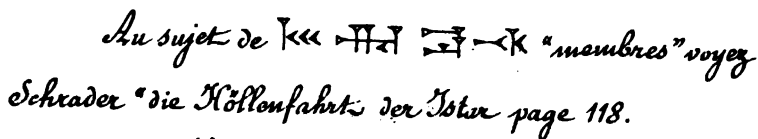 Au sujet de "membres" voyez
Schrader "die Höllenfahrt der Istar page 118.